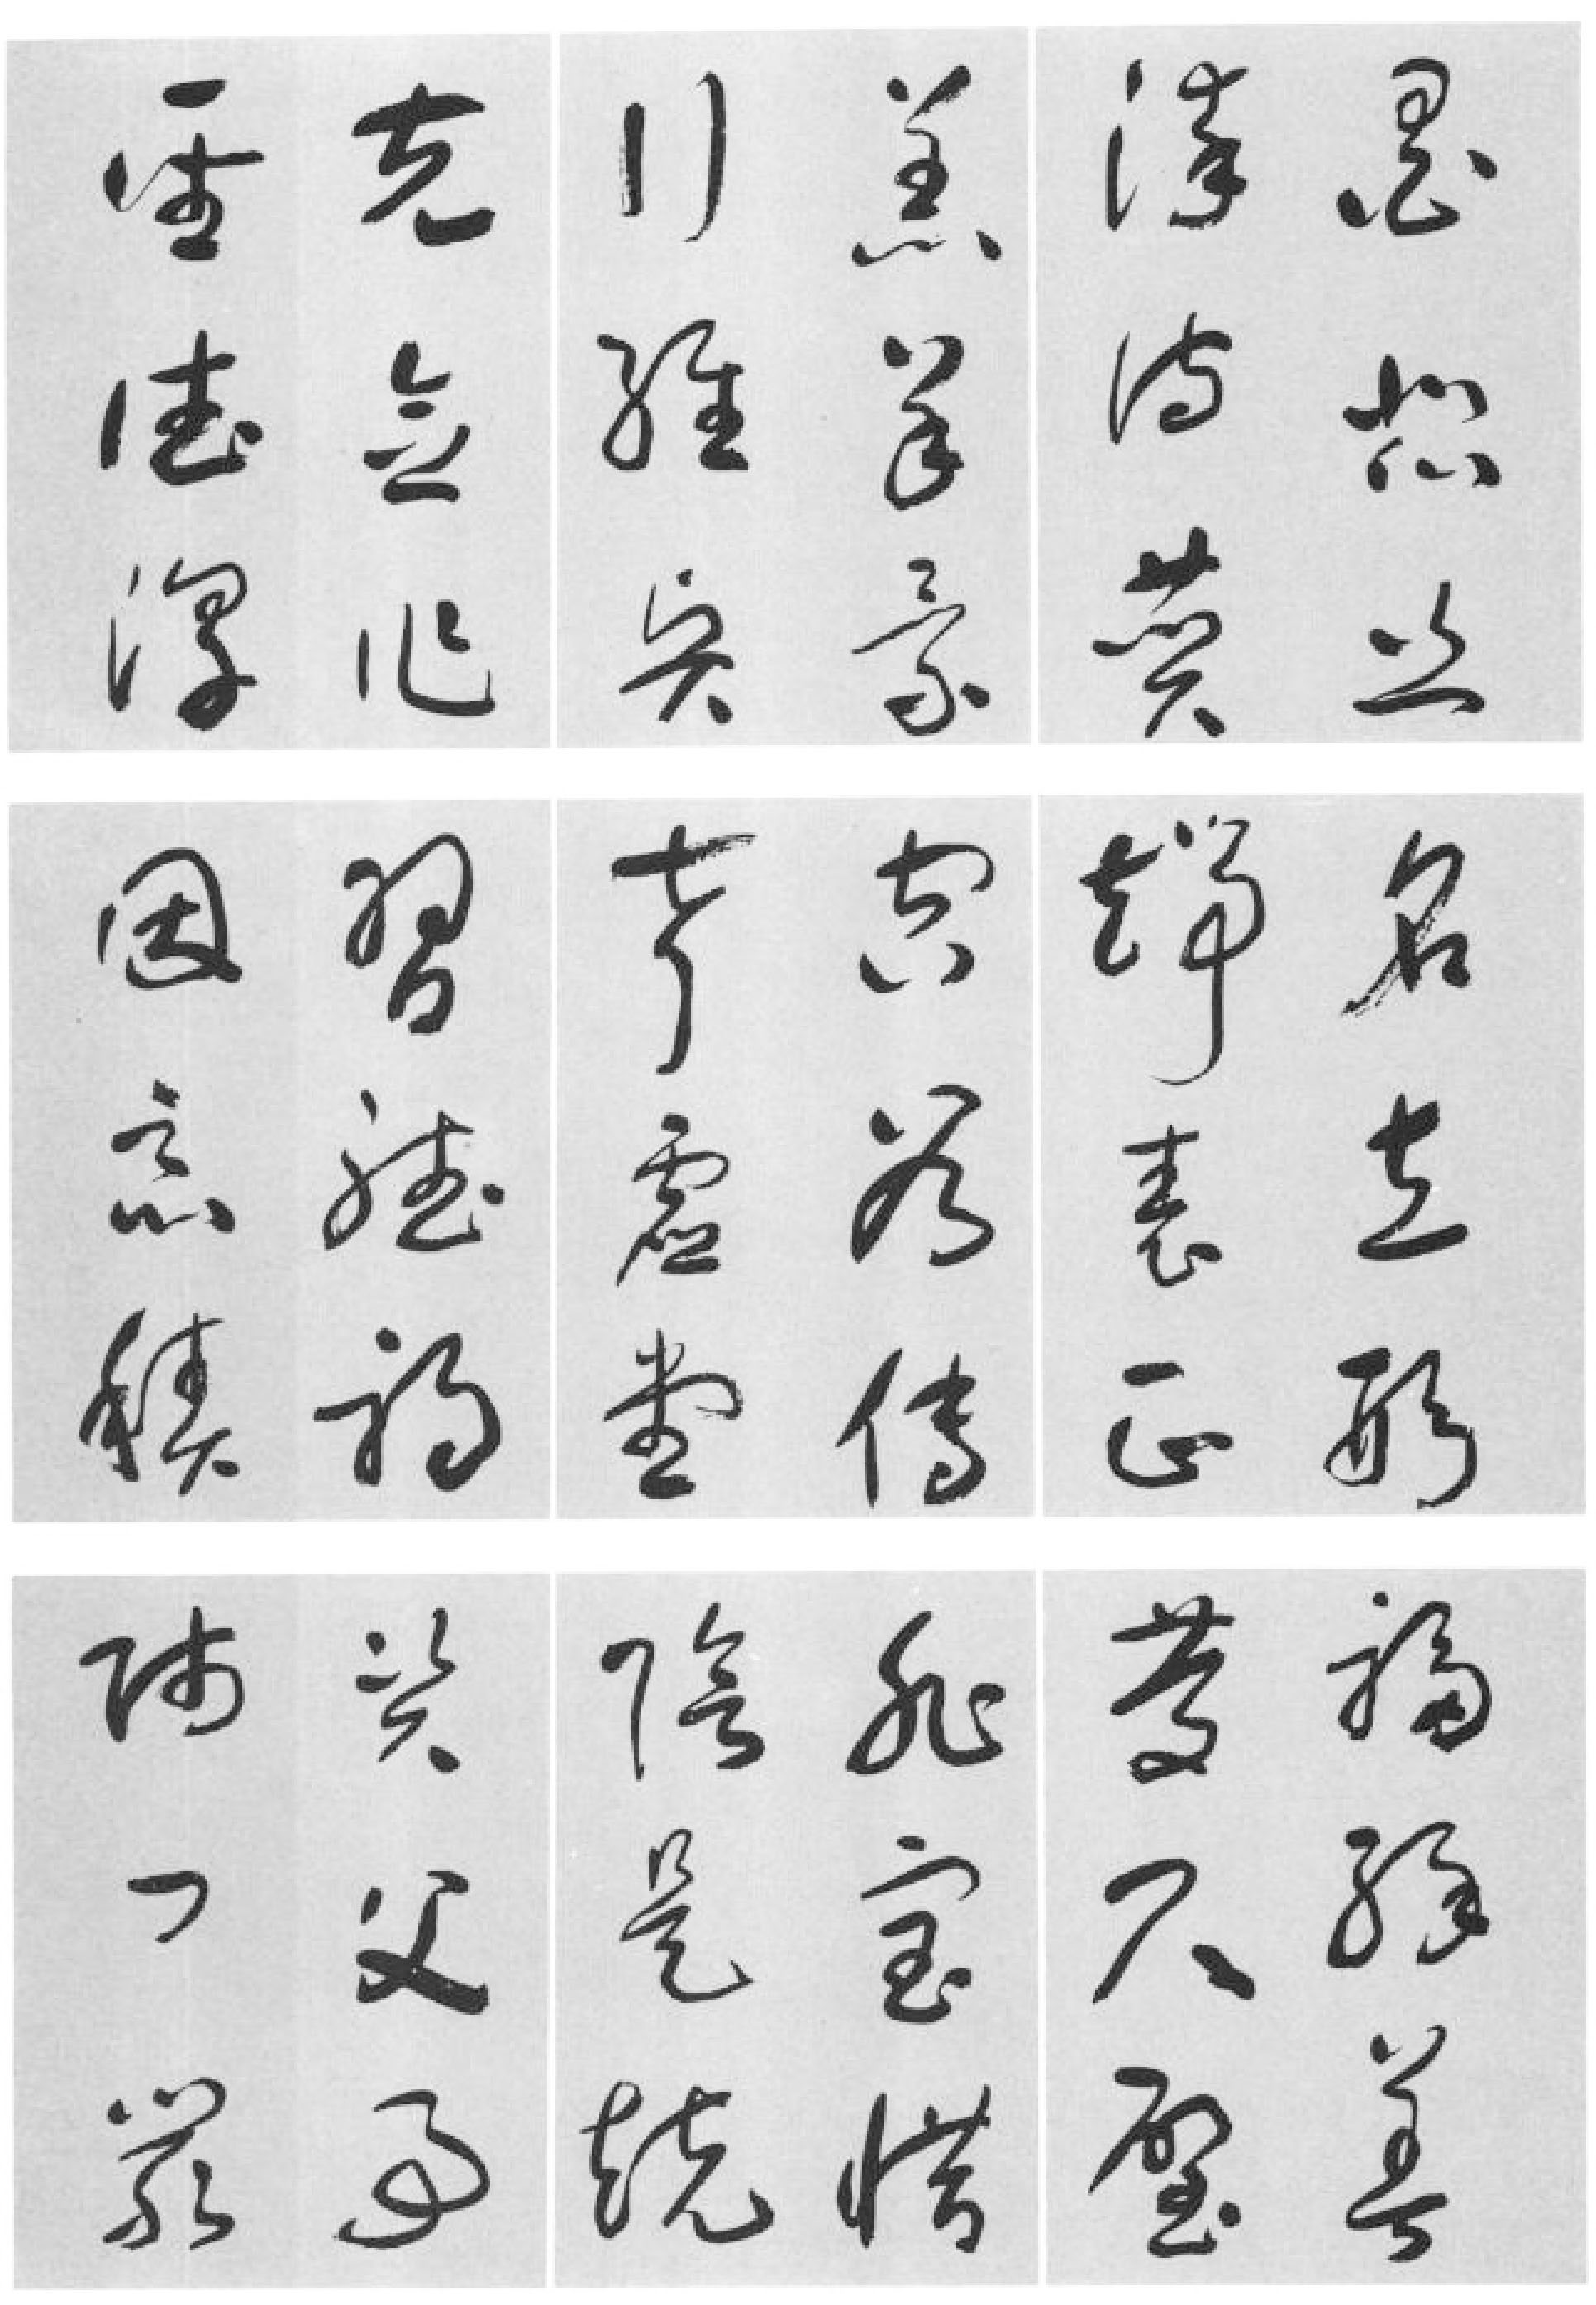 墨悲絲
染詩贊
羔羊景
行維賢
克念作
聖德
名立形
端表正
空谷傳
聲虛堂
習聽禍
因惡積
福緣善
慶尺璧
非寶惜
陰是競
資父事
師曰嚴